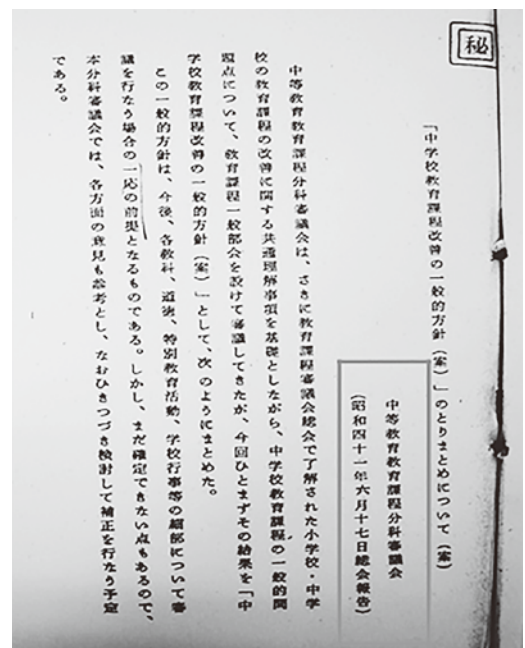 秘
「中学校教育課程改善の一般的方針(案)」のとりまとめについて(案)
中等教育教育課程分科審議会
(昭和四十一年六月十七日総会報告)
中等教育教育課程分科審議会は、さきに教育課程審議会総会で了解された小学校・中学
校の教育課程の改善に関する共通理解事項を基礎としながら、中学校教育課程の一般的問
題点について、教育課程一般部会を設けて審議してきたが、今回ひとまずその結果を「中
学校教育課程改善の一般的方針(案)」として、次のようにまとめた。
この一般的方針は、今後、各教科、道徳、特別教育活動、学校行事等の細部について審
議を行なう場合の一応の前提となるものである。しかし、まだ確定できない点もあるので、
本分科審議会では、各方面の意見も参考とし、なおひきつづき検討して補正を行なう予定
である。